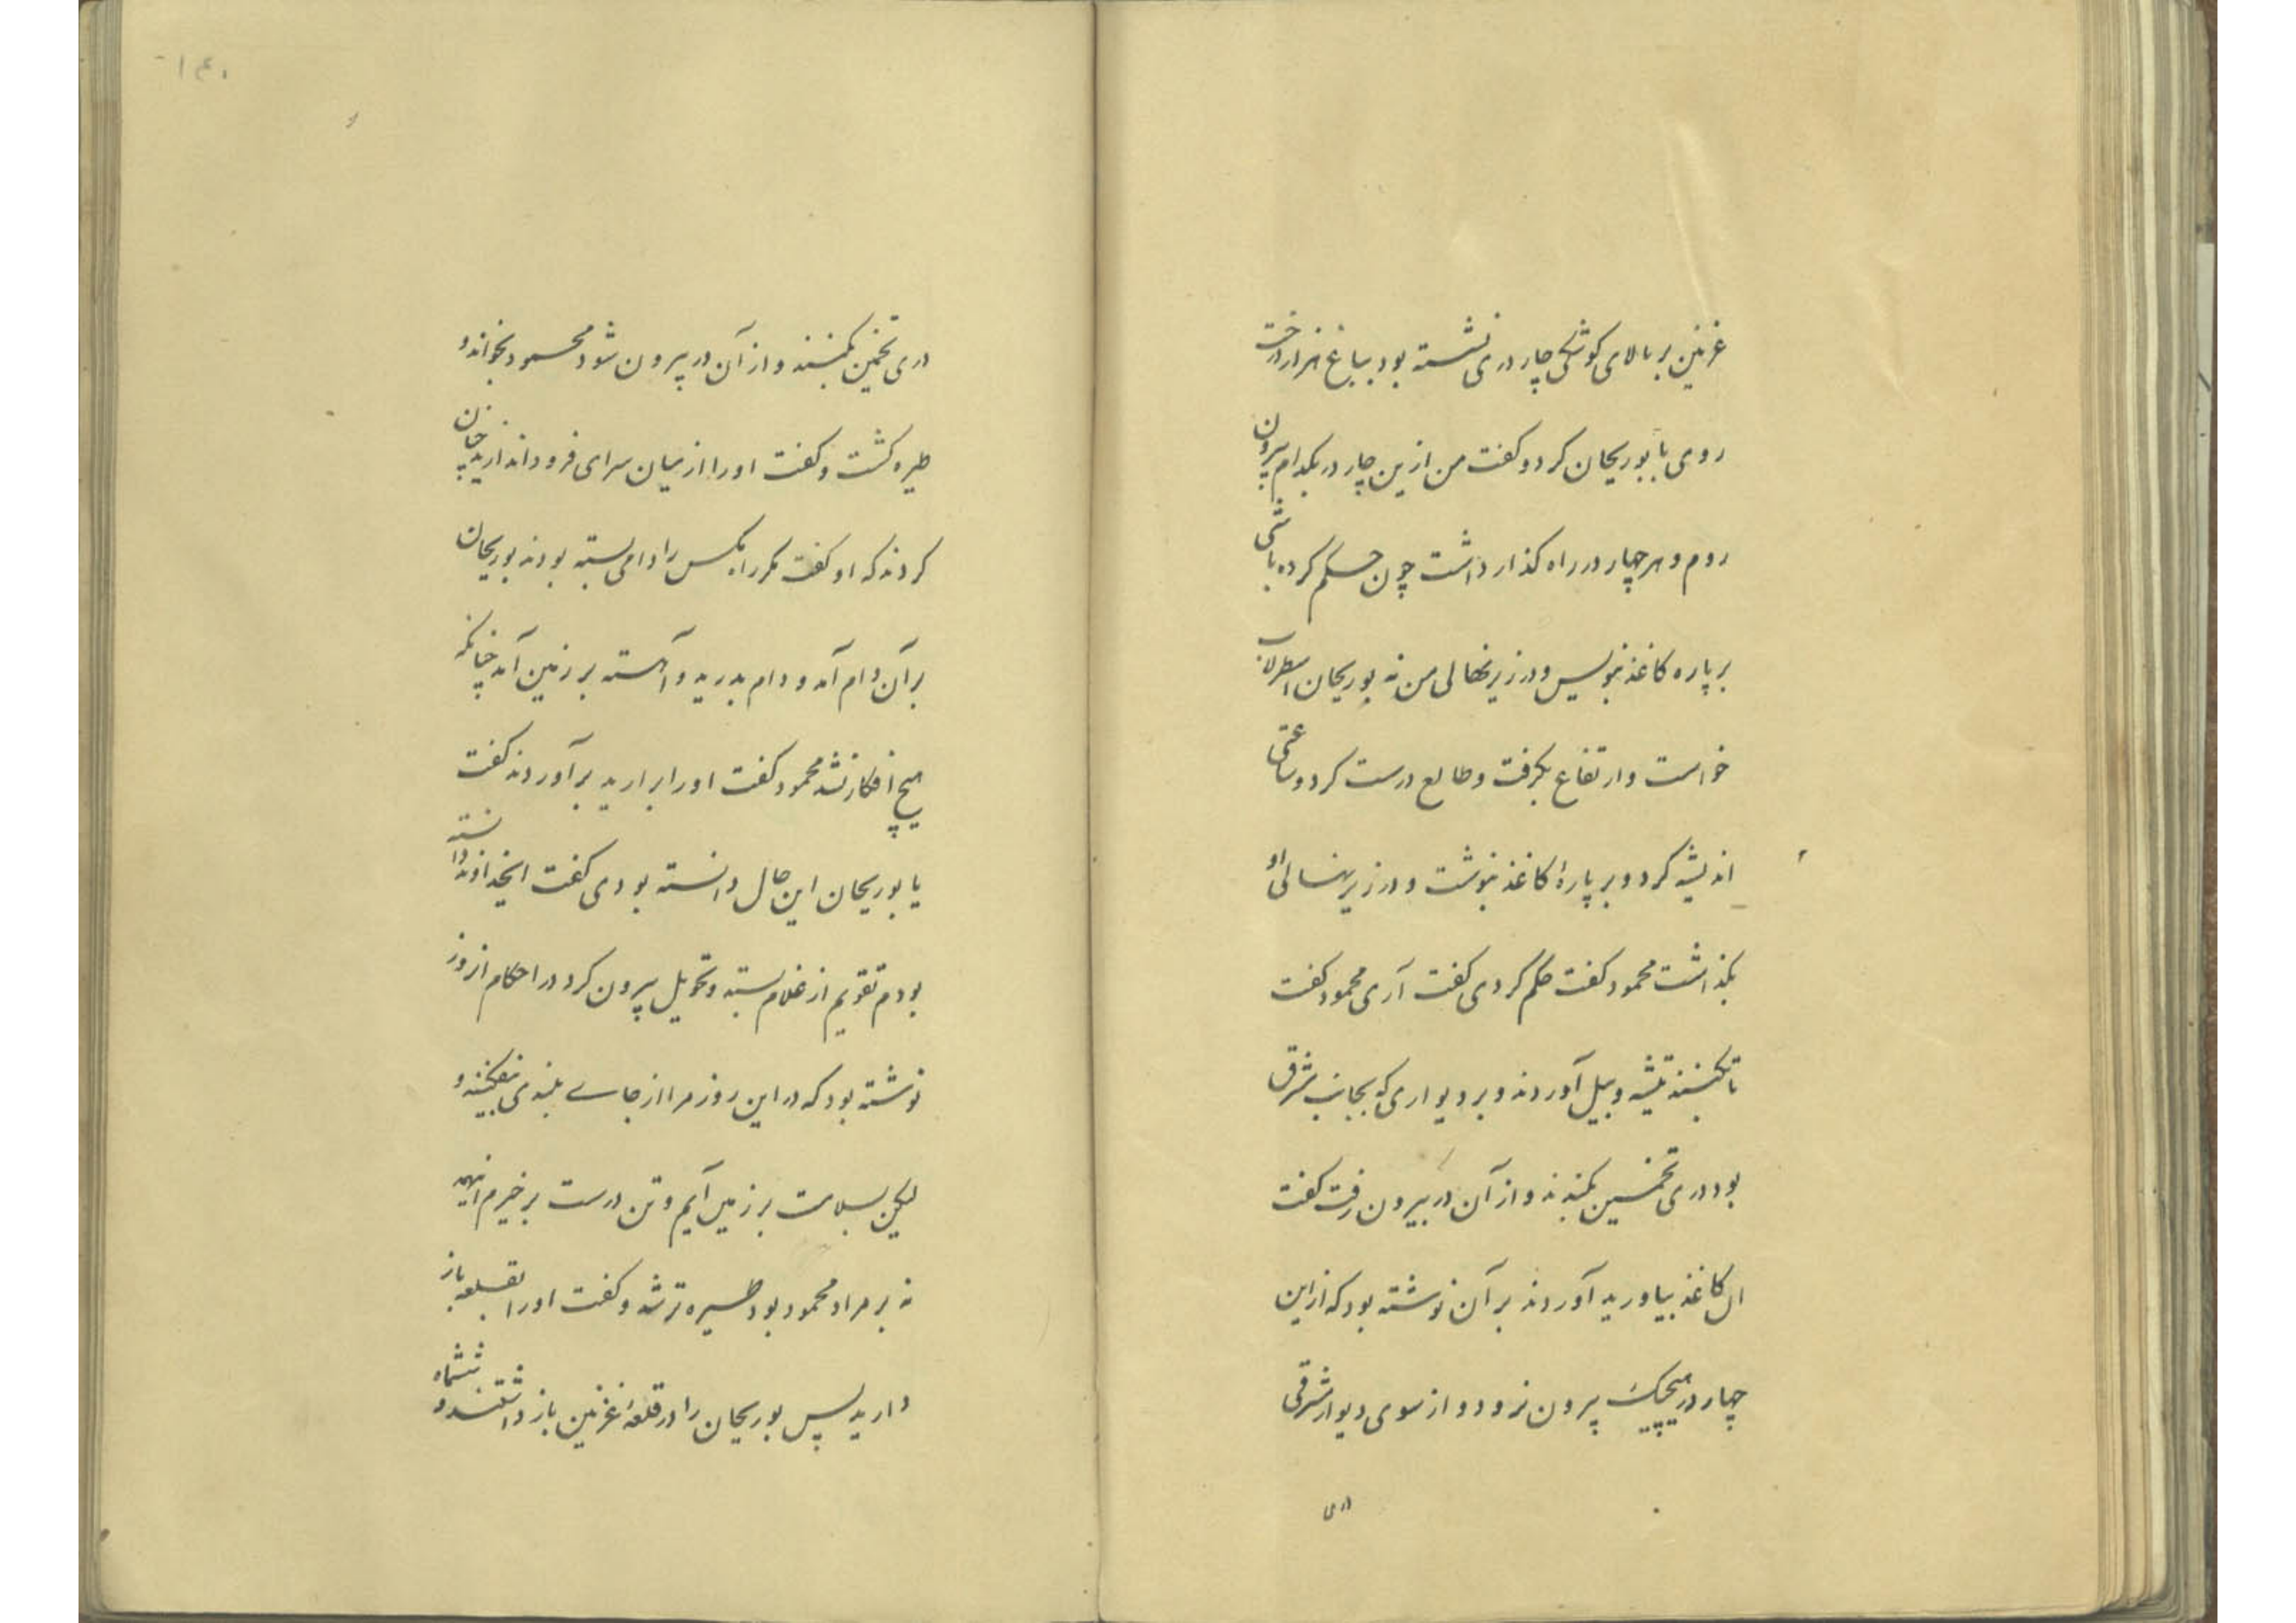 غزنین بر بالای کوشکی چار دری نشسته بود بباغ هزار درخت
روی با بوریحان کرد و کفت من ازین چار در بکدام بیرون
روم و هر چهار در راه کذار داشت چون حکم کرده باشی
بر پاره کاغذ بنویس و در زیر نهالی من نه بوریحان اسطرلاب
خواست و ارتفاع بکرفت و طالع درست کرد و ساعتی
اندیشه کرد و بر پارۀ کاغذ بنوشت و در زیر نهالی او
بگذاشت محمود کفت حکم کردی کفت آری محمود کفت
تا بکنند تیشه و بیل آوردند و بر دیواری که بجانب شرق
بود دری تخمین بکندند و از آن در بیرون رفت کفت
ال کاغذ بیاورید آوردند بر آن نوشته بود که از این
چهار در هیچیک بیرون نرود و از سوی دیوار شرقی
دری
۱۴۰
دری تخمین بکنند و از آن در بیرون شود محمود بخواند و
طیره کشت و کفت او را از میان سرای فرود اندازید چنان
کردند که او کفت مکر را مکس را دامی بسته بودند بوریحان
بر آن دام آمد و دام بدرید و آهسته بر زمین آمد چنانکه
هیچ افکار نشد محمود کفت او را برارید برآوردند کفت
یا بوریحان این حال دانسته بودی کفت ایخداوند دانسته
بودم تقویم از غلام بسته و تحویل بیرون کرد در احکام انروز
نوشته بود که در این روز مرا از جای بلندی بیفکنند و
لیکن بسلامت بر زمین آیم و تن درست برخیزم اینهمه
نه بر مراد محمود بود طیره تر شد و کفت او را بقلعه باز
دارید پس بوریحان را در قلعۀ غزنین باز داشتند و ششماه